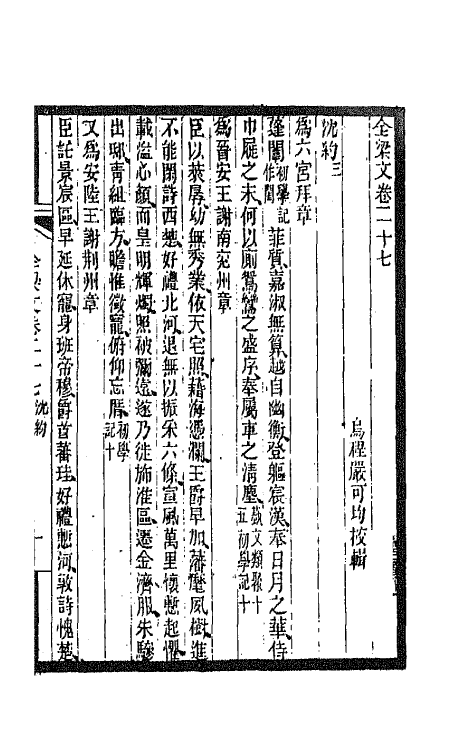 全梁文卷二十七
烏程嚴可均校輯
沈約三
爲六宮拜章
蓬閣初學記作閨菲質嘉淑無算越自幽衡登軀宸漢奉日月之華侍
巾屣之末何以廁鴛鸞之盛序奉屬車之清塵藝文類聚十五初學記十
爲晉安王謝南兗州章
臣以萊孱幼無秀業依天宅照藉海憑瀾王爵早加藩麾夙樹進
不能閑詩西楚好禮北河退無以振采六條宣風萬里懷慙起懼
載溢心顏而皇明輝燭照被彌遠遂乃徙旆淮區遷金濟服朱驂
出邸青組臨方瞻惟徽寵俯仰忘厝初學記十
又爲安陸王謝荊州章
臣託景宸區早延休寵身班帝穆爵首蕃珪好禮慙河敦詩愧楚
全梁文卷二十七 沈約
一